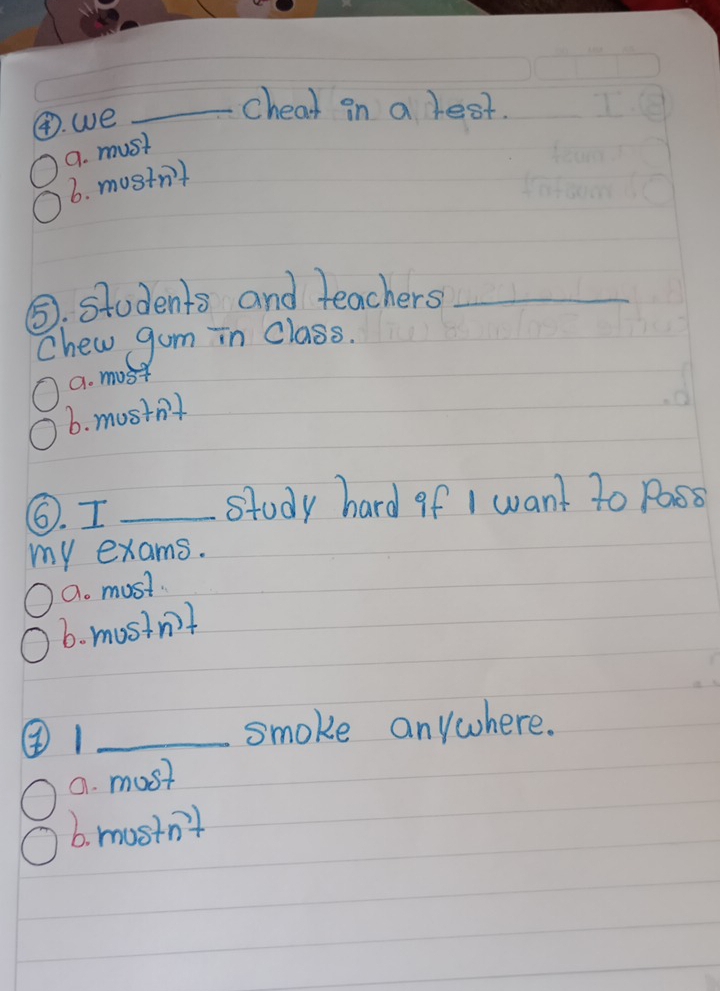 ④. we ______ cheat in a test.
a. must
b. mustn't
⑤. students and teachers ______
chew gum in class.
a. must
b. mustn't
⑥. I ______ study hard if I want to pass
my exams.
a. must.
b. mustn't
⑦ I ______ smoke anywhere.
a. must
b. mustn't